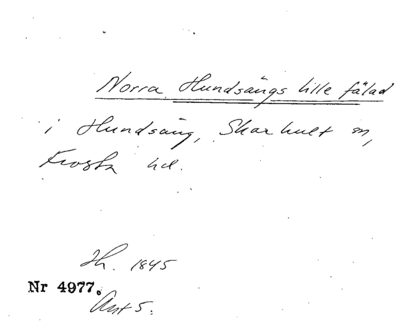 Norra Hundsängs lille fälad
i Hundsäng, Skarhult sn,
Frosta hd.
Jh. 1845
Nr 4977.
Ant 5.